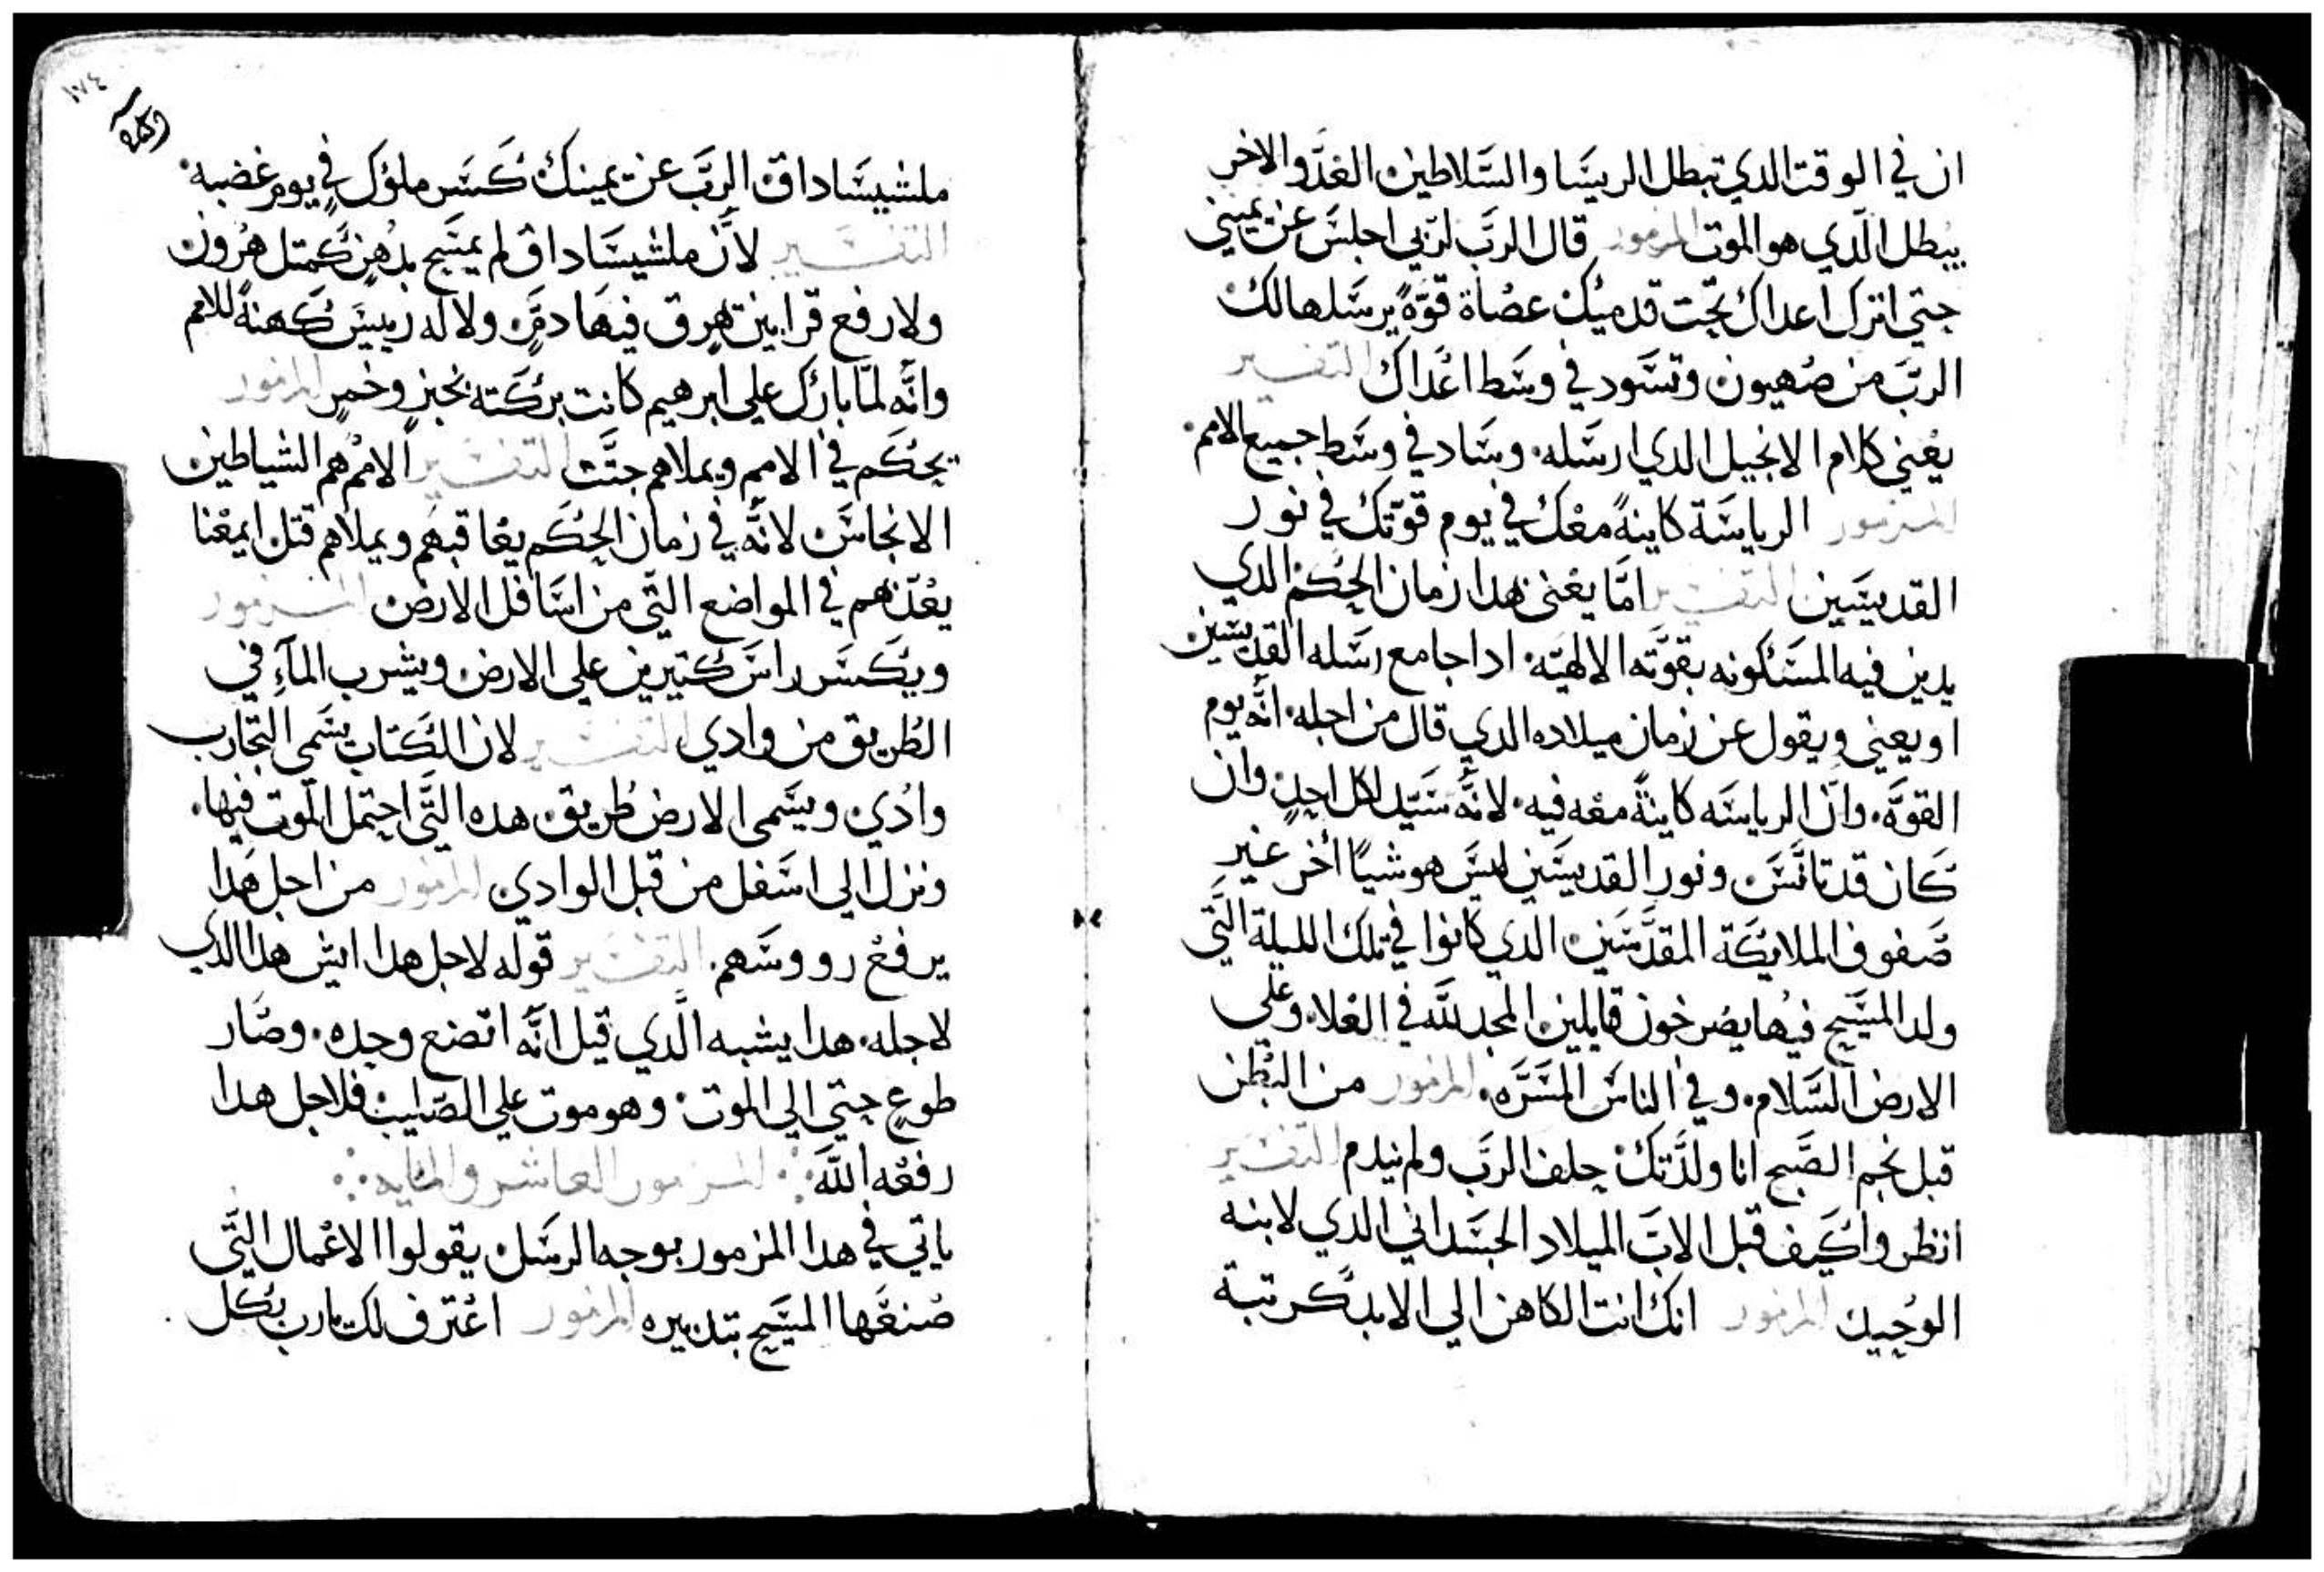 ان في الوقت الدي تبطل الريسا والسلاطين الغدو الاخر
يبطل الدي هو الموت المزمور قال الرب لربي اجلس عن يميني
حتي اترك اعداك تحت قدميك عصاة قوة يرسلها لك
الرب من صهيون وتسود في وسط اعداك التفسير
يعني كلام الانجيل الدي ارسله وساد في وسط جميع الامم
المزمور الرياسة كاينة معك في يوم قوتك في نور
القديسين التفسير اما يعني هدا زمان الحكم الدي
يدين فيه المسكونه بقوته الالهية ادا جا مع رسله القديسين
او يعني ويقول عن زمان ميلاده الدي قال من اجله انه يوم
القوة وان الرياسه كاينة معه فيه لانه سيد لكل احد وان
كان قد تانس ونور القديسين ليس هو شيا اخر غير
صفوف الملايكة المقدسين الدي كانوا في تلك الليلة التي
ولد المسيح فيها يصرخون قايلين المجد لله في العلا وعلي
الارض السلام وفي الناس المسره المزمور من البطن
قبل نجم الصبح انا ولدتك حلف الرب ولم يندم التفسير
انظروا كيف قبل الاب الميلاد الجسداني الدي لابنه
الوحيد المزمور انك انت الكاهن الي الابد كرتبة
١٧٤
ملشيساداق الرب عن يمينك كسر ملوك في يوم غضبه
التفسير لان ملشيساداق لم يمسح بدهن كمتل هرون
ولا رفع قرابين تهرق فيها دم ولا له رييس كهنة للامم
وانه لما بارك علي ابرهيم كانت بركته بخبز وخمر المزمور
يحكم في الامم ويملاهم جتت التفسير الامم هم الشياطين
الانجاس لانه في زمان الحكم يعاقبهم ويملاهم قتل ايمعنا
يعدبهم في المواضع التي من اسافل الارض المزمور
ويكسر راس كتيرين علي الارض ويشرب المآء في
الطريق من وادي التفسير لان الكتاب يسمي التجارب
وادي ويسمي الارض طريق هده التي احتمل الموت فيها
ونزل الي اسفل من قبل الوادي المزمور من اجل هدا
يرفع رووسهم التفسير قوله لاجل هدا ايش هدا الدي
لاجله هدا يشبه الدي قيل انه اتضع وحده وصار
طوع حتي الي الموت وهو موت علي الصليب فلاجل هدا
رفعه الله المزمور العاشر والمايه
ياتي في هدا المزمور بوجه الرسل يقولوا الاعمال التي
صنعها المسيح بتدبيره المزمور اعترف لك يارب بكل